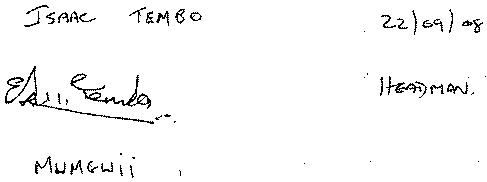 ISAAC TEMBO 22/09/08
HEADMAN.
MWMGWII